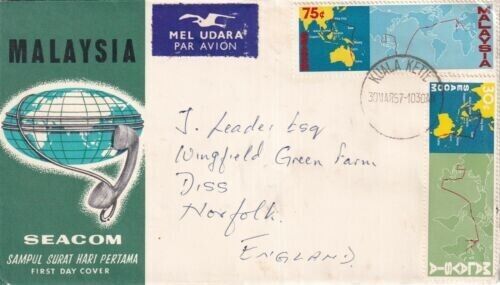 MALAYSIA
SEACOM
SAMPUL SURAT HARI PERTAMA
FIRST DAY COVER
MEL UDARA
PAR AVION
J. Leader Esq
Wingfield Green Farm
DISS
Norfolk.
ENGLAND
75¢
SEACOM
MALAYSIA
KUALA KETIL
30MAR67-1030A
30¢
SEACOM
MALAYSIA